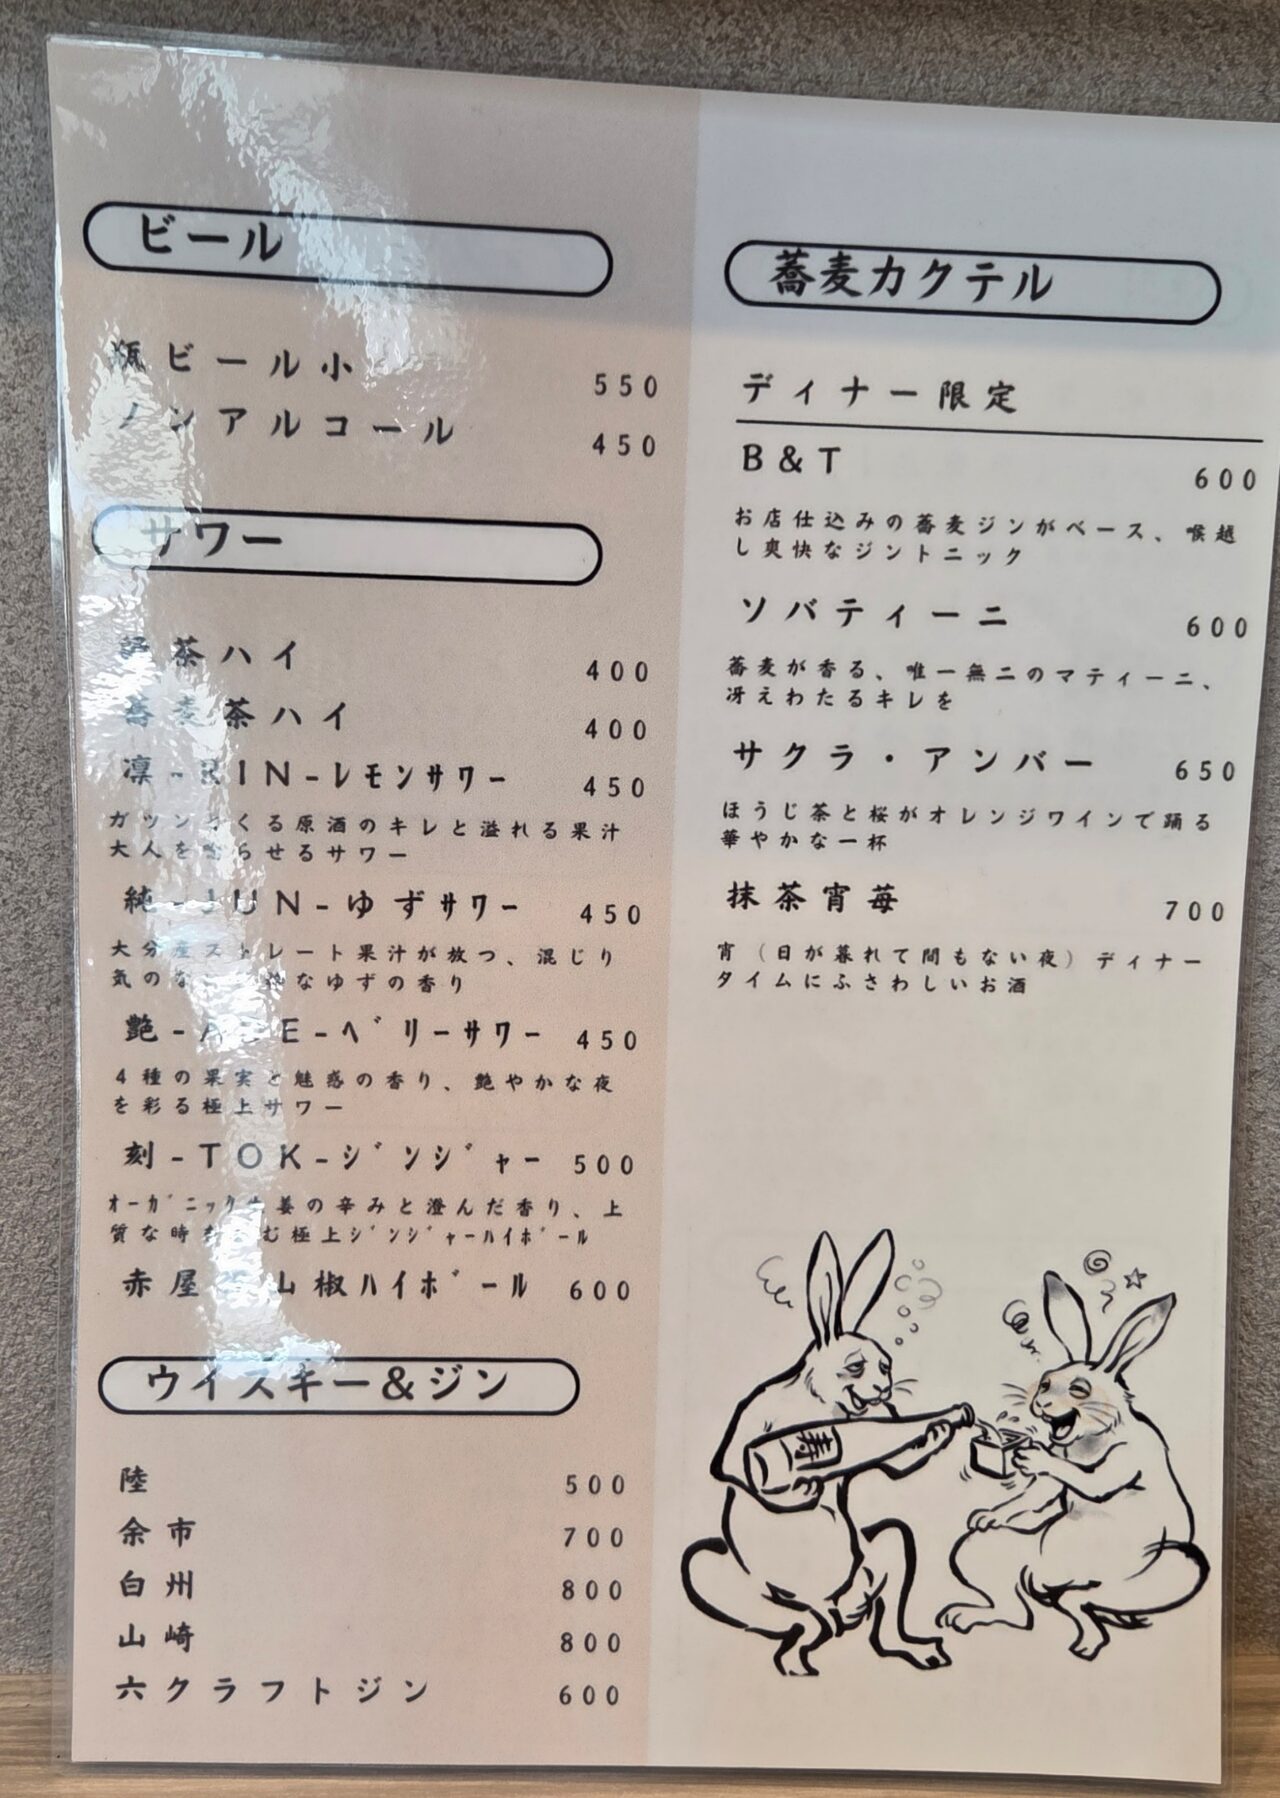 ビール
瓶ビール小 550
ノンアルコール 450
サワー
茶ハイ 400
蕎麦茶ハイ 400
凛-RIN-レモンサワー 450
ガツンとくる原酒のキレと溢れる果汁
大人を らせるサワー
純-JUN-ゆずサワー 450
大分産ストレート果汁が放つ、混じり
気のな なゆずの香り
艶-ADE-ベリーサワー 450
4種の果実と魅惑の香り、艶やかな夜
を彩る極上サワー
刻-TOK-ジンジャー 500
オーガニック生姜の辛みと澄んだ香り、上
質な時を む極上ジンジャーハイボール
赤屋 山椒ハイボール 600
ウイスキー&ジン
陸 500
余市 700
白州 800
山崎 800
六クラフトジン 600
蕎麦カクテル
ディナー限定
B&T 600
お店仕込みの蕎麦ジンがベース、喉越
し爽快なジントニック
ソバティーニ 600
蕎麦が香る、唯一無二のマティーニ、
冴えわたるキレを
サクラ・アンバー 650
ほうじ茶と桜がオレンジワインで踊る
華やかな一杯
抹茶宵苺 700
宵(日が暮れて間もない夜)ディナー
タイムにふさわしいお酒
寿一